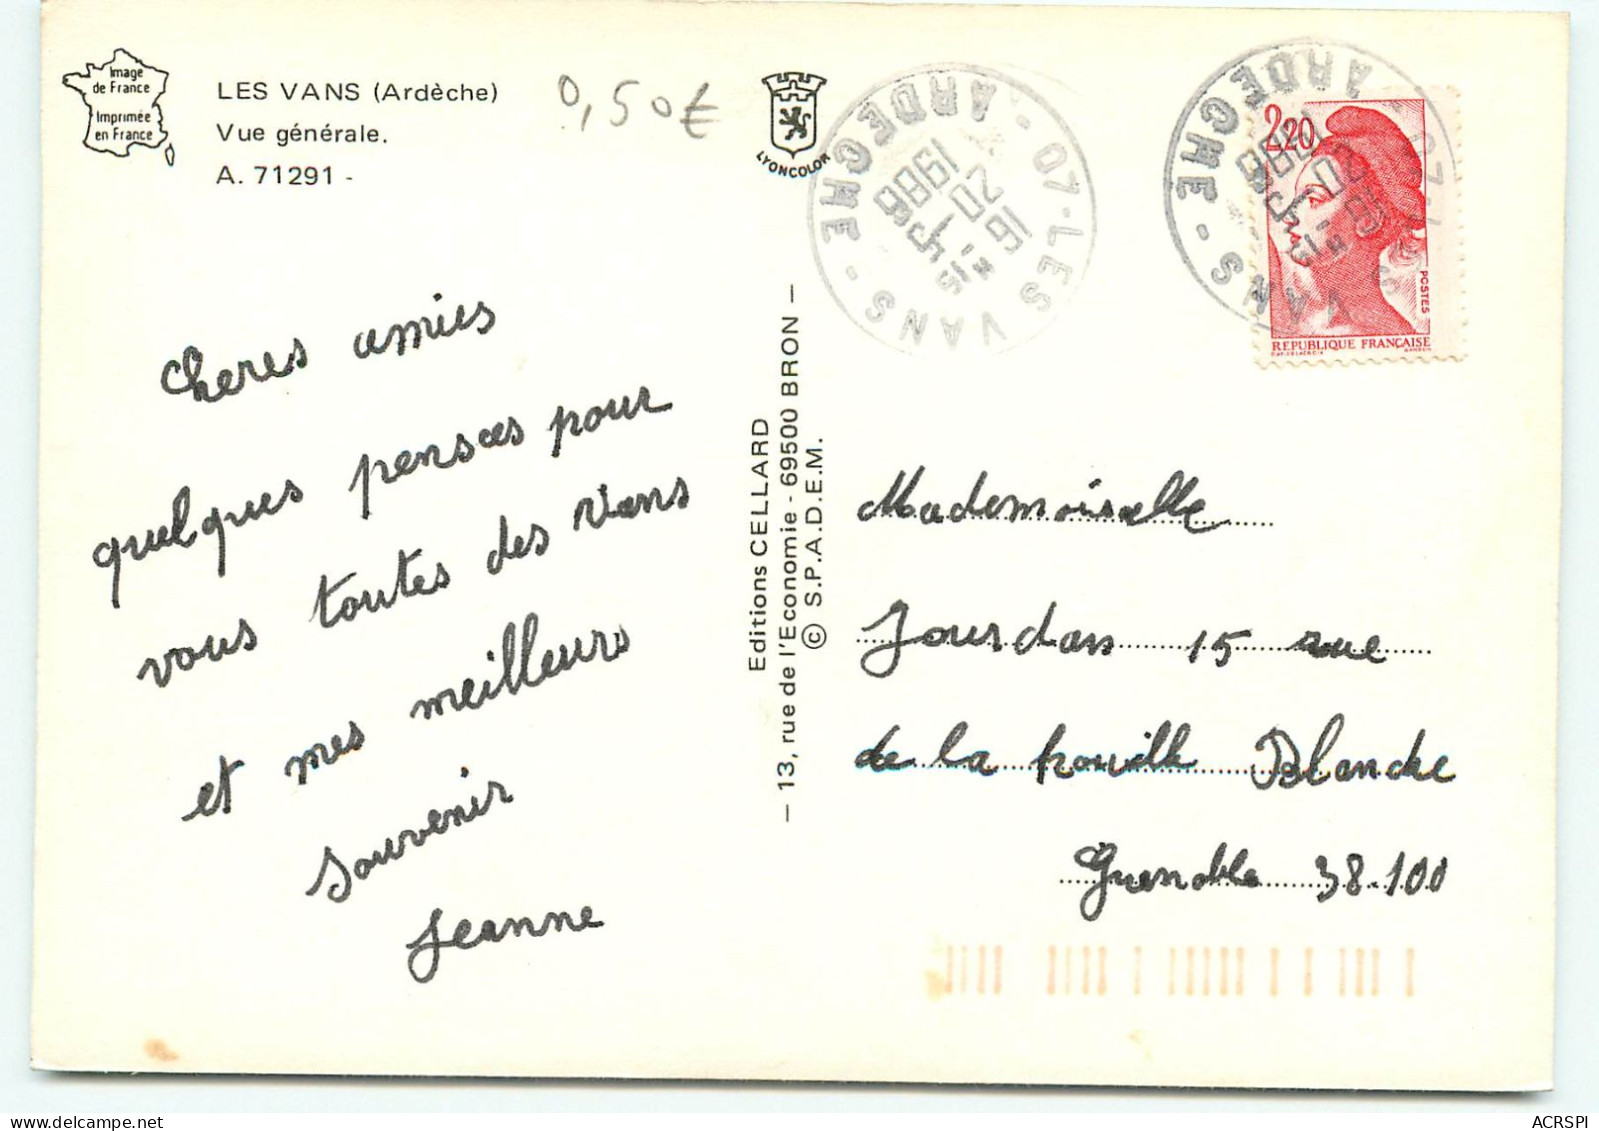 Image
de France
Imprimée
en France
LES VANS (Ardèche)
Vue générale.
A. 71291 -
0,50€
LYONCOLOR
07-LES VANS - ARDECHE -
16
20
1988
2,20
POSTES
REPUBLIQUE FRANÇAISE
cheres amies
quelques pensées pour
vous toutes des Vans
et mes meilleurs
souvenir
Jeanne
Editions CELLARD
— 13, rue de l'Economie - 69500 BRON —
© S.P.A.D.E.M.
Mademoiselle
Jourdan 15 rue
de la houille Blanche
Grenoble 38.100
ACRSPI